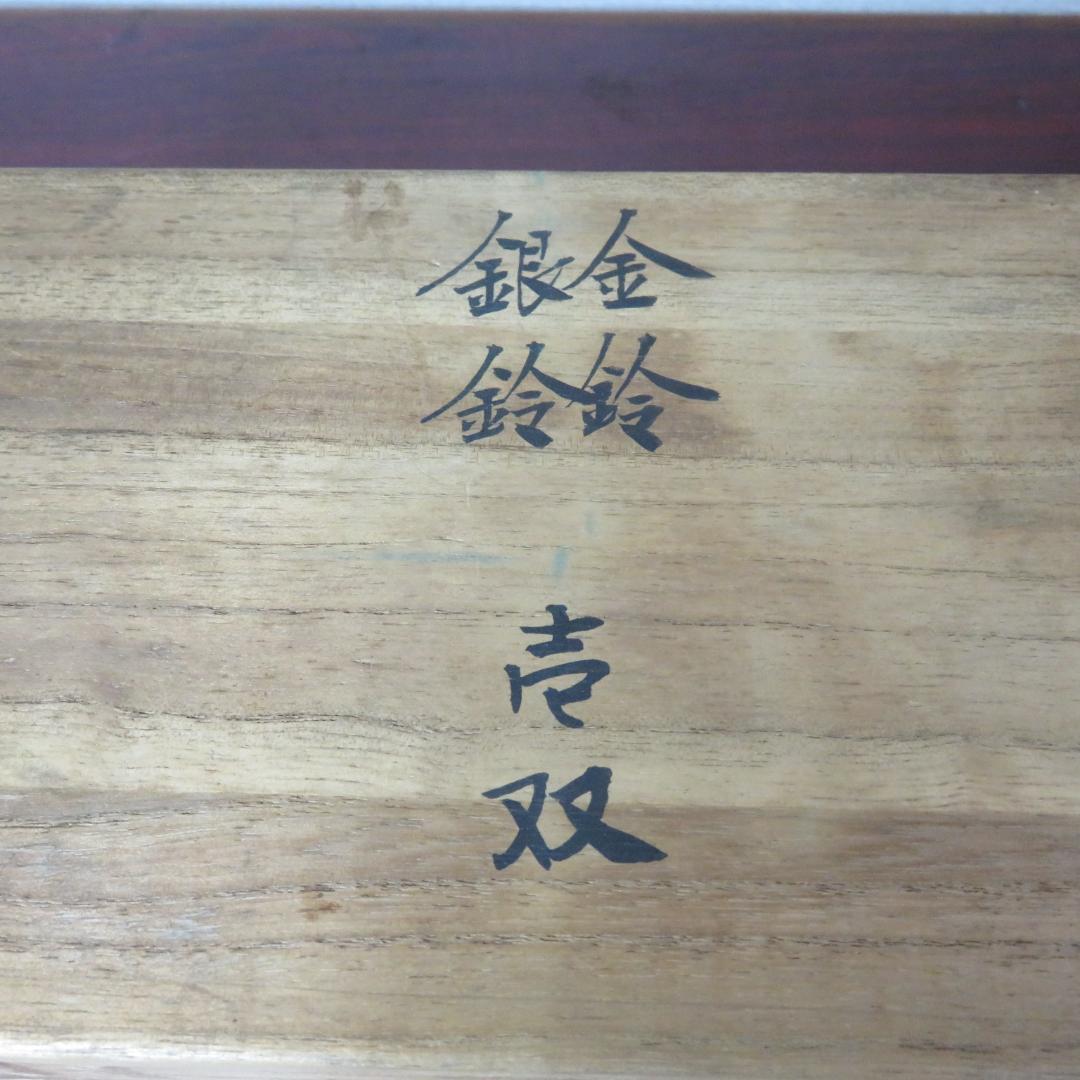 金鈴
銀鈴
壱双